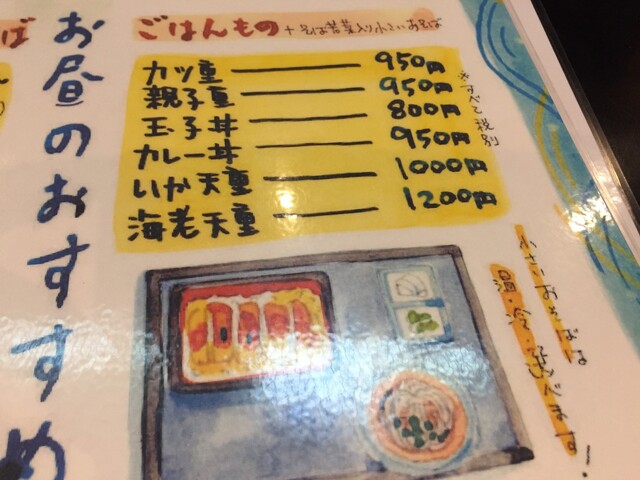 お昼のおすすめ
ごはんもの
カツ重 950円
親子重 950円
玉子丼 800円
カレー丼 950円
いか天重 1000円
海老天重 1200円
※すべて税別
小さいおそばは
温・冷・選べます!